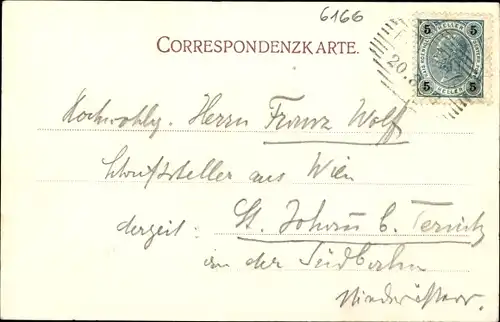 6166
CORRESPONDENZKARTE.
5 HELLER 5
20.
5 HELLER 5
Hochwohlg. Herrn Franz Wolff
Schriftsteller aus Wien
derzeit: St. Johann b. Ternitz
an der Südbahn
Niederösterr.